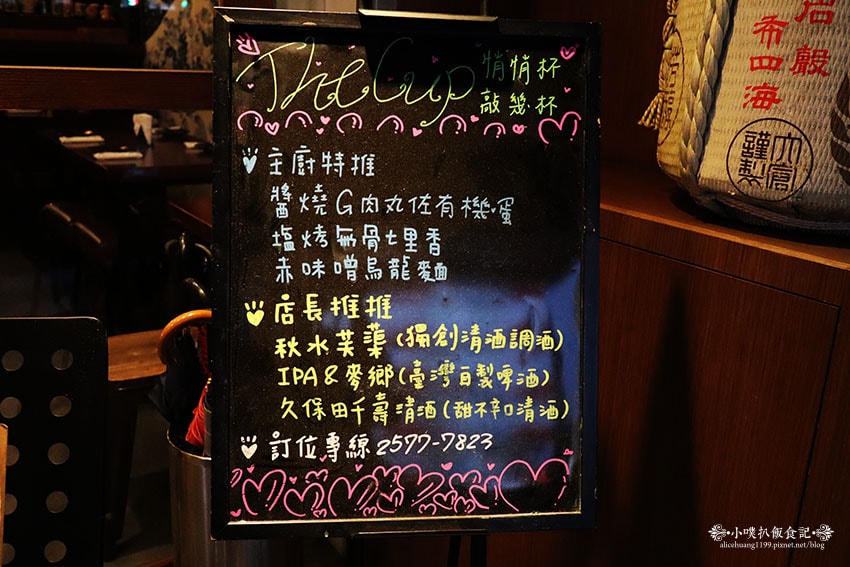 The Cup 悄悄杯
敲幾杯
主廚特推
醬燒G肉丸佐有機蛋
塩烤無骨七里香
赤味噌烏龍麵
店長推推
秋水芙蕖(獨創清酒調酒)
IPA & 麥鄉(臺灣自製啤酒)
久保田千壽清酒(甜不辛口清酒)
訂位專線 2577-7823
布四海
謹製
小噗扒飯食記
alicehuang1199.pixnet.net/blog